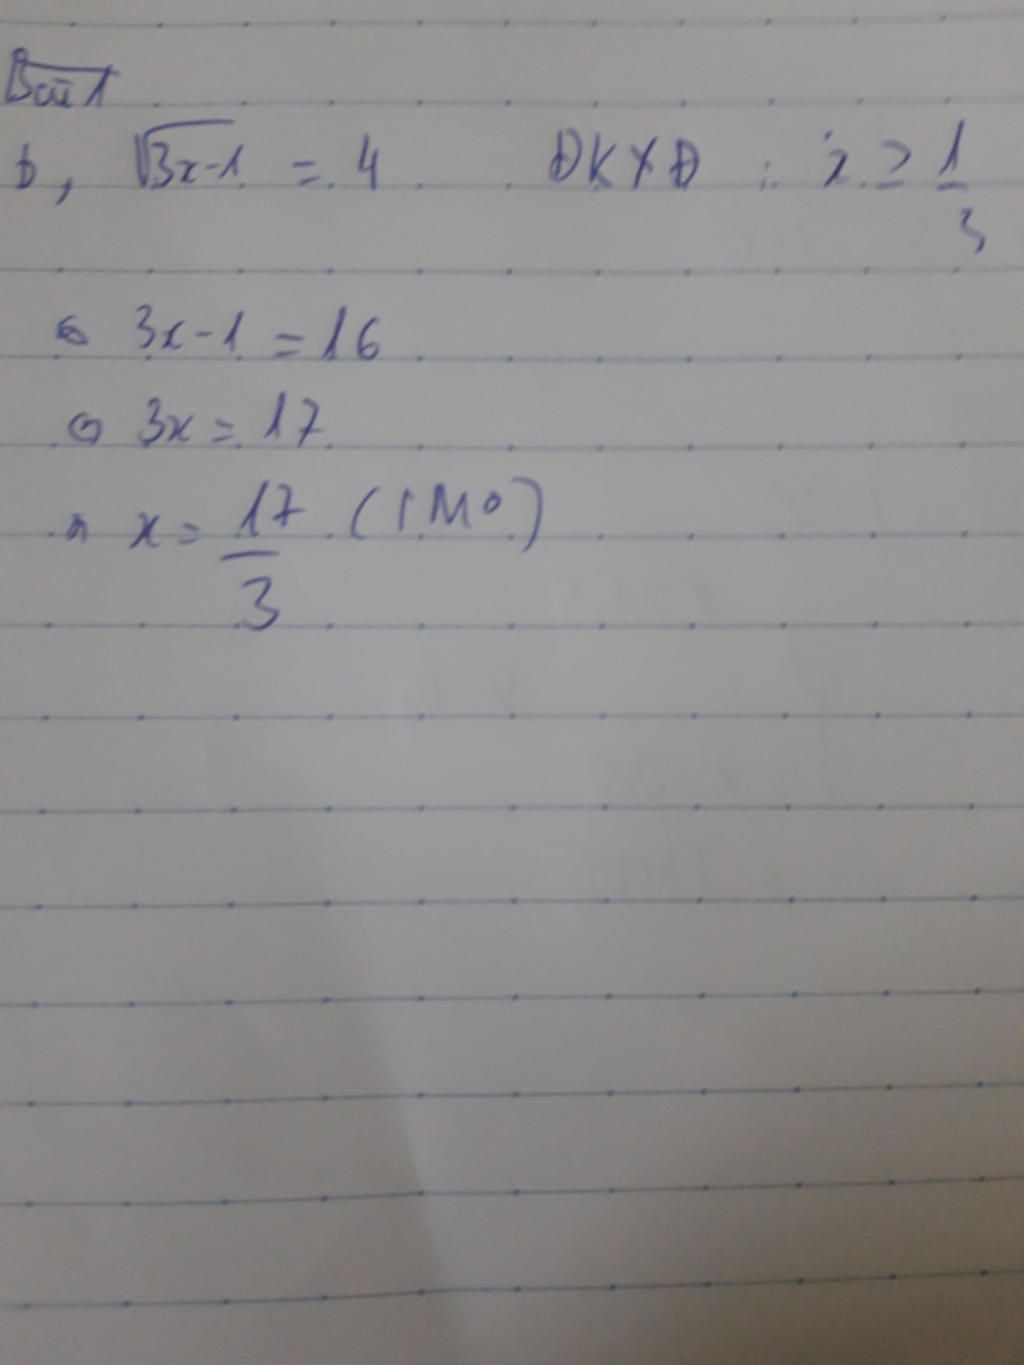 Bài 1
b, √3x-1 = 4 ĐKXĐ : x ≥ 1/3
⇔ 3x-1 = 16
⇔ 3x = 17
⇔ x = 17/3 (TMĐ)